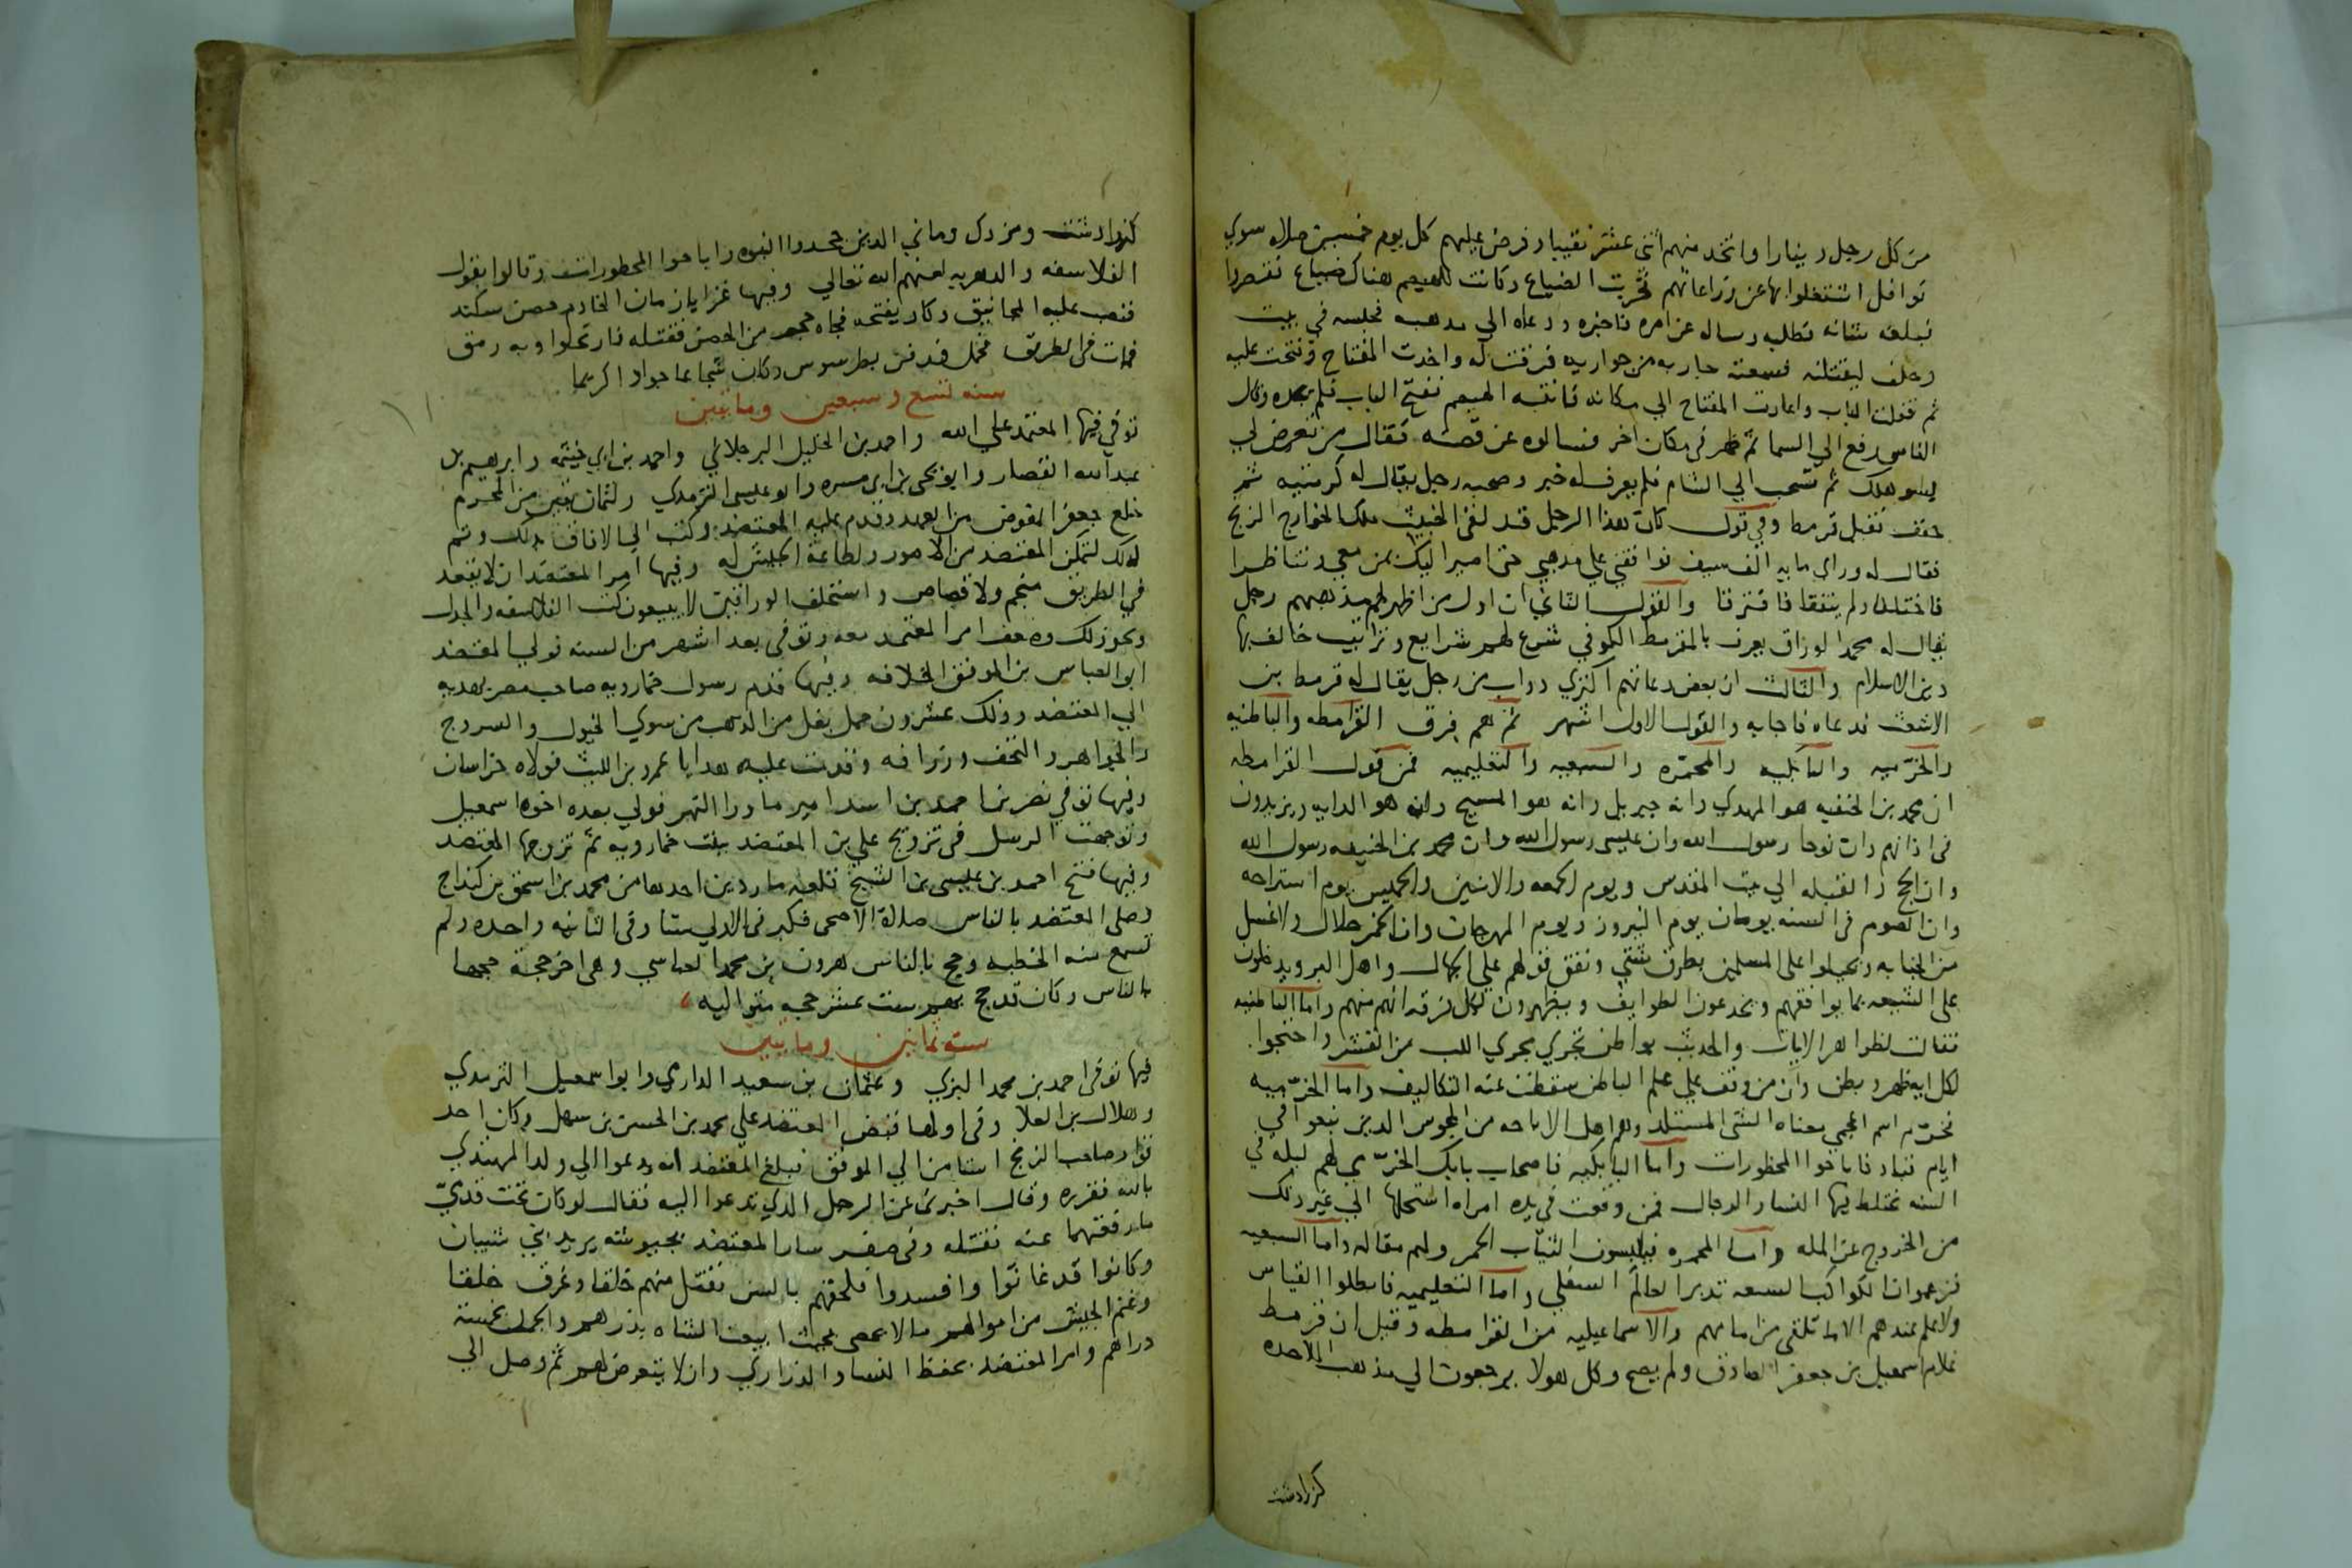 من كل رجل دينارا واتخذ منهم اثنى عشر نقيبا وفرض عليهم كل يوم خمسين صلاه سوي
نوافل اشتغلوا بها عن زراعاتهم فخربت الضياع وكانت للهيصم هناك ضياع فقصروا
فبلغه شانه فطلبه وساله عن امره فاخبره ودعاه الي مذهبه فحبسه في بيت
وحلف ليقتلنه فسمعته جاريه من جواريه فرقت له واخذت المفتاح وفتحت عليه
ثم قفلت الباب واعادت المفتاح الي مكانه فانتبه الهيصم ففتح الباب فلم يجده وقال
الناس رفع الي السما ثم ظهر في مكان اخر فسالوه عن قصته فقال من تعرض لي
بسو هلك ثم تسحب الي الشام فلم يعرف له خبر وصحبه رجل يقال له كرميته ثم
خفف فقيل قرمط وفي قول كان هذا الرجل قد لقي الخبيث ملك الخوارج الزنج
فقال له وراي مايه الف سيف توافقني علي مذهبي حتى اصير اليك بمن معي وتناظرا
فاختلفا ولم يتفقا فافترقا والقول الثاني ان اول من اظهر لهم مذهبهم رجل
يقال له محمد الوراق يعرف بالمقرمط الكوفي شرع لهم شرايع وتراتيب خالف بها
دين الاسلام والثالث ان بعض دعاتهم اكتري دواب من رجل يقال له قرمط بن
الاشعث فدعاه فاجابه والقول الاول اشهر ثم هم فرق القرامطه والباطنيه
والخرميه والبابكيه والمحمره والسبعيه والتعليميه فمن قول القرامطه
ان محمد بن الحنفيه هو المهدي وانه جبريل وانه هو المسيح وانه هو الدابه ويزيدون
في اذانهم وان نوحا رسول الله وان عيسى رسول الله وان محمد بن الحنفيه رسول الله
وان الحج والقبله الي بيت المقدس ويوم الجمعه والاثنين والخميس يوم استراحه
وان الصوم في السنه يومان يوم النيروز ويوم المهرجان وان الخمر حلال ولا غسل
من الجنابه وتحيلوا على المسلمين بطرق شتي ونفق قولهم علي الجهال واهل البر ويدخلون
على الشيعه بما يوافقهم ويخدعون الطوايف ويظهرون لكل فرقه انهم منهم واما الباطنيه
فقالت لظواهر الايات والحديث بواطن تجري مجري اللب من القشر واحتجوا
لكل ايه ظهر وبطن وان من وقف علي علم الباطن سقطت عنه التكاليف واما الخرميه
فخرم اسم اعجمي معناه الشي المستلذ وهم اهل الاباحه من المجوس الذين نبغوا في
ايام قباد فاباحوا المحظورات واما البابكيه فاصحاب بابك الخرمي لهم ليله في
السنه تختلط فيها النسا والرجال فمن وقعت في يده امراه استحلها الي غير ذلك
من الخروج عن المله واما المحمره فيلبسون الثياب الحمر ولهم مقاله واما السبعيه
فزعموا ان الكواكب السبعه تدبر العالم السفلي واما التعليميه فابطلوا القياس
ولا علم عندهم الا ما تلقى من امامهم والاسماعيليه من القرامطه وقيل ان قرمط
غلام اسمعيل بن جعفر الصادق ولم يصح وكل هولا يرجعون الي مذهب الملاحده
كزرادشت
كزرادشت ومزدك وماني الذين جحدوا النبوه واباحوا المحظورات وقالوا بقول
الفلاسفه والدهريه لعنهم الله تعالي وفيها غزا يازمان الخادم حصن سكند
فنصب عليه المجانيق وكاد يفتحه فجاه حجر من الحصن فقتله فارتحلوا وبه رمق
فمات في الطريق فحمل فدفن بطرسوس وكان شجاعا جوادا كريما
سنه تسع وسبعين ومايتين
توفي فيها المعتمد علي الله واحمد بن الخليل البرجلاني واحمد بن ابي خيثمه وابرهيم بن
عبد الله القصار وابو يحيى بن ابي مسره وابو عيسى الترمذي ولثمان بقين من المحرم
خلع جعفر المفوض من العهد وقدم عليه المعتضد وكتب الي الافاق بذلك وتم
له ذلك لتمكن المعتضد من الامور ولطاعة الجيش له وفيها امر المعتضد ان لا يقعد
في الطريق منجم ولا قصاص واستحلف الوراقين لا يبيعون كتب الفلاسفه والجدل
ونحو ذلك وضعف امر المعتمد معه وتوفي بعد اشهر من السنه فولي المعتضد
ابو العباس بن الموفق الخلافه وفيها قدم رسول خمارويه صاحب مصر بهديه
الي المعتضد وذلك عشرون حمل بغل من الذهب من سوي الخيول والسروج
والجواهر والتحف وزرافه وقدمت عليه هدايا عمرو بن الليث فولاه خراسان
وفيها توفي نصر بن احمد بن اسد امير ما ورا النهر فولي بعده اخوه اسمعيل
وتوجهت الرسل في تزويج علي بن المعتضد ببنت خمارويه ثم تزوجها المعتضد
وفيها فتح احمد بن عيسى بن الشيخ قلعه ماردين اخذها من محمد بن اسحق بن كنداج
وصلى المعتضد بالناس صلاة الاضحى فكبر في الاولي ستا وفي الثانيه واحده ولم
تسمع منه الخطبه وحج بالناس هرون بن محمد العباسي وهي اخر حجة حجها
بالناس وكان قد حج بهم ست عشر حجه متواليه
سنه ثمانين ومايتين
فيها توفي احمد بن محمد البرتي وعثمان بن سعيد الدارمي وابو اسمعيل الترمذي
وهلال بن العلا وفي اولها قبض المعتضد علي محمد بن الحسن بن سهل وكان احد
قواد صاحب الزنج استامن الي الموفق فبلغ المعتضد انه يدعوا الي ولد المهتدي
بالله فقرره وقال اخبرني عن الرجل الذي تدعوا اليه فقال لو كان تحت قدمي
ما رفعتهما عنه فقتله وفي صفر سار المعتضد بجيوشه يريد بني شيبان
وكانوا قد عاثوا وافسدوا فلحقهم بالسن فقتل منهم خلقا وغرق خلقا
وغنم الجيش من اموالهم ما لا يحصى بحيث ابيعت الشاه بدرهم والجمل بخمسة
دراهم وامر المعتضد بحفظ النسا والذراري وان لا يتعرض لهم ثم وصل الي